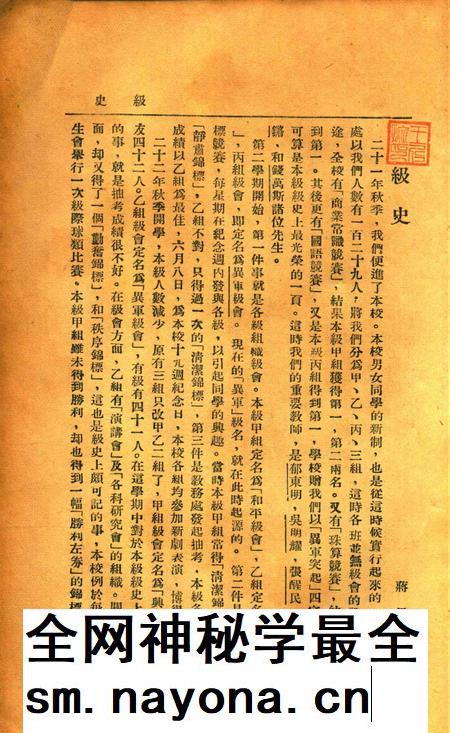 級史
級史
蔣
二十一年秋季，我們便進了本校。本校男女同學的新制，也是從這時候實行起來的
處以我們人數有一百二十九人，將我們分爲甲、乙、丙、三組，這時各班並無級會的
途，全校有「商業常識競賽」，結果本級甲組獲得第一，第二兩名。又有「珠算競賽」，
到第一。其後更有「國語競賽」，又是本級丙組得到第一，學校贈我們以「異軍突起」四
可算是本級級史上最光榮的一頁。這時我們的重要教師，是郁東明，吳明耀 張醒民
鏘，和錢萬斯諸位先生。
第二學期開始，第一件事就是各級組織級會。本級甲組定名爲「和平級會」，乙組定
」，丙組級會，即定名爲異軍級會。現在的「異軍」級名，就在此時起源的。第二件
標競賽，每星期在紀念週內發與各級，以引起同學的興趣。當時本級甲組常得「清潔錦
「靜肅錦標」，乙組不對，只得過一次的「清潔錦標」，第三件是教務處發起抽考，本級
成績以乙組爲最佳，六月八日，爲本校十九週紀念日，本校各組均參加新劇表演，博得
二十二年秋季開學，本級人數減少，原有三組只改甲乙二組了，甲組級會定名爲「興
友四十二人。乙組級會定名爲「異軍級會」，有級友四十一人。在這學期中對於本級級史上
的事，就是抽考成績很不好。在級會方面，乙組有「演講會」及「各科研究會」的組織。
面，却又得了一個「勤奮錦標」，和「秩序錦標」，這也是級史上頗可記的事，本校例於每
生會舉行一次級際球類比賽。本級甲組雖未得到勝利，却也得到一幅「勝利左劵」的錦標
全网神秘学最全
sm.nayona.cn